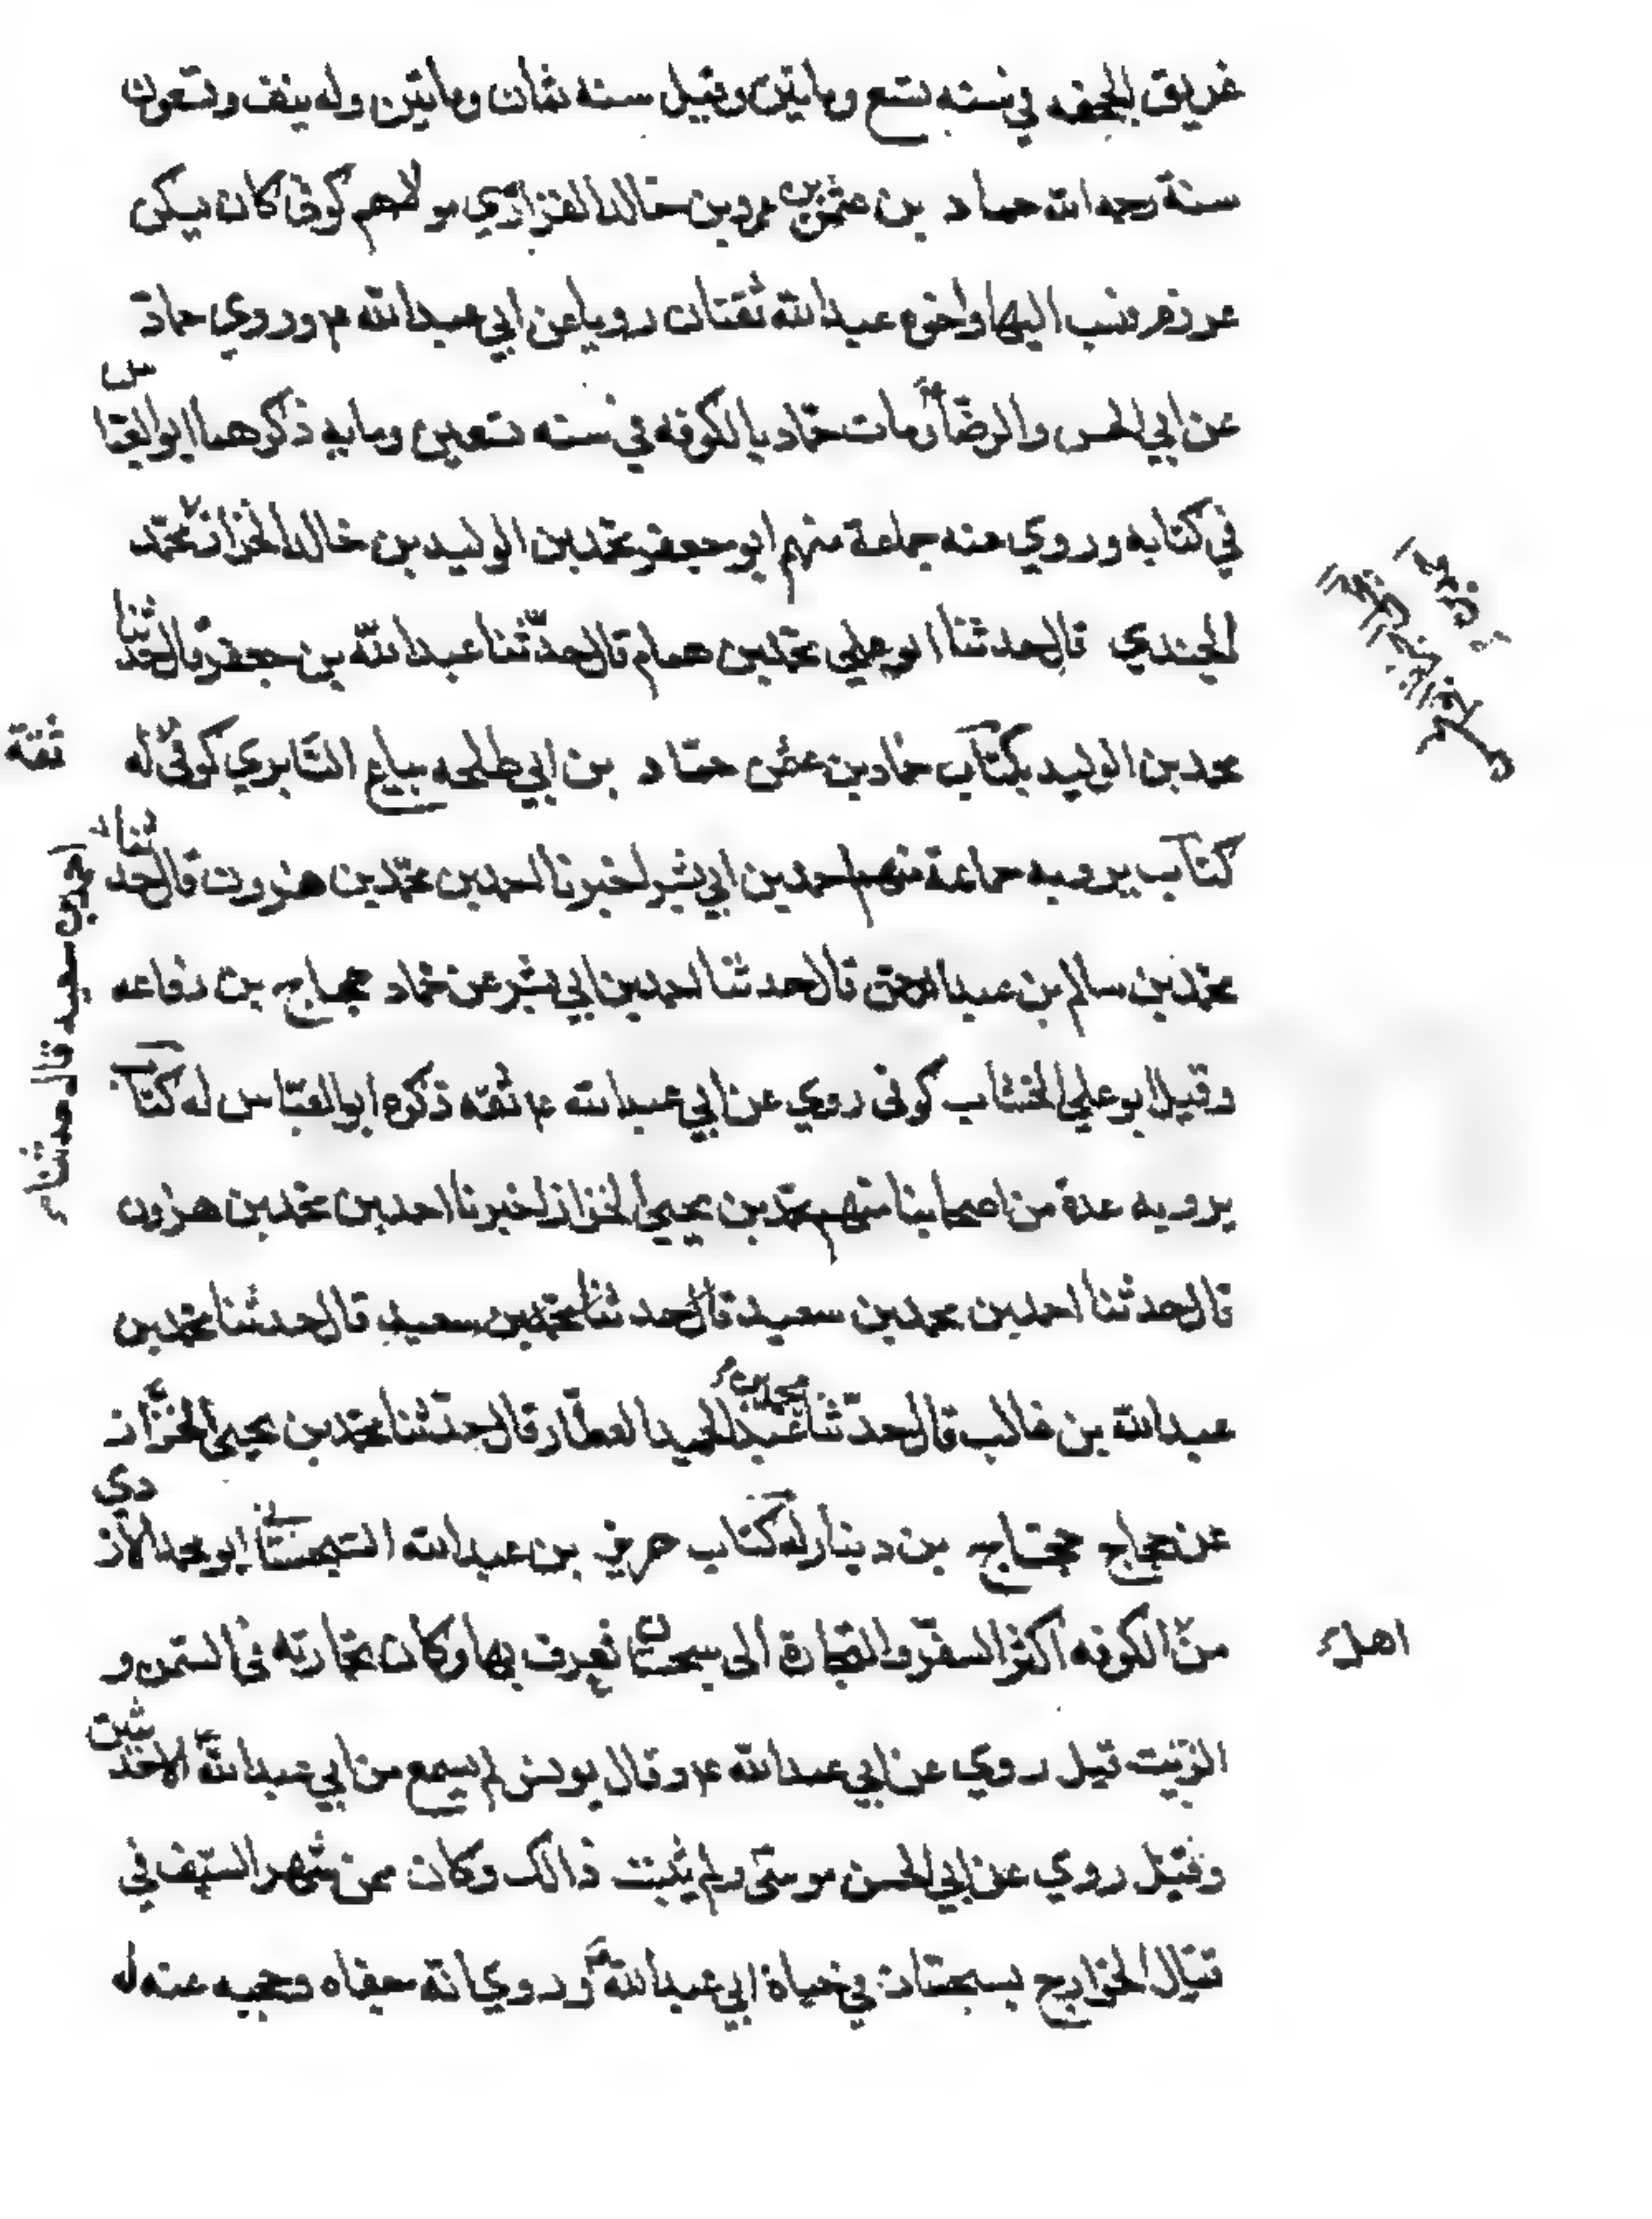 غريق الجحفه في سنه تسع وماتين وقيل سنة ثمان وماتين وله نيف وتسعون
سنة رحمه الله حماد بن عثمن بن عمرو بن خالد الفزاري مولاهم كوفي كان يسكن
عرزم فنسب اليها واخوه عبد الله ثقتان رويا عن ابي عبد الله ع وروي حماد
عن ابي الحسن والرضا ع ومات حماد بالكوفه في سنه تسعين ومايه ذكرهما ابو العباس
في كتابه وروي عنه جماعة منهم ابو جعفر محمد بن الوليد بن خالد الخزاز محمد
الجندي قال حدثنا ابو علي محمد بن همام قال حدثنا عبد الله بن جعفر قال حدثنا
محمد بن الوليد بكتاب حماد بن عثمن حماد بن ابي طلحه بياع السابري كوفي ثقة له
كتاب يرويه جماعة منهم احمد بن ابي بشر اخبرنا احمد بن محمد بن هرون قال حدثنا
احمد بن سعيد قال حدثنا
محمد بن سالم بن عبد الرحمن قال حدثنا احمد بن ابي بشر عن حماد حجاج بن رفاعه
وقيل ابو علي الخشاب كوفي روي عن ابي عبد الله ع ثقه ذكره ابو العباس له كتاب
يرويه عدة من اصحابنا منهم محمد بن يحيى الخزاز اخبرنا احمد بن محمد بن هرون
قال حدثنا احمد بن محمد بن سعيد قال حدثنا محمد بن سعيد قال حدثنا محمد بن
عبد الله بن غالب قال حدثنا محمد بن عبد الحميد العطار قال حدثنا محمد بن يحيى الخزاز
عن حجاج حجاج بن دينار له كتاب حريز بن عبد الله السجستاني ابو محمد الازدي
من اهل الكوفه اكثر السفر والتجارة الى سجستان فعرف بها وكان تجارته في السمن و
الزيت قيل روي عن ابي عبد الله ع وقال يونس لم يسمع من ابي عبد الله الا حديثين
وقيل روي عن ابي الحسن موسى ولم يثبت ذالك وكان ممن شهر السيف في
قتال الخوارج بسجستان في حياة ابي عبد الله ع وروي انه جفاه وحجبه عنه له